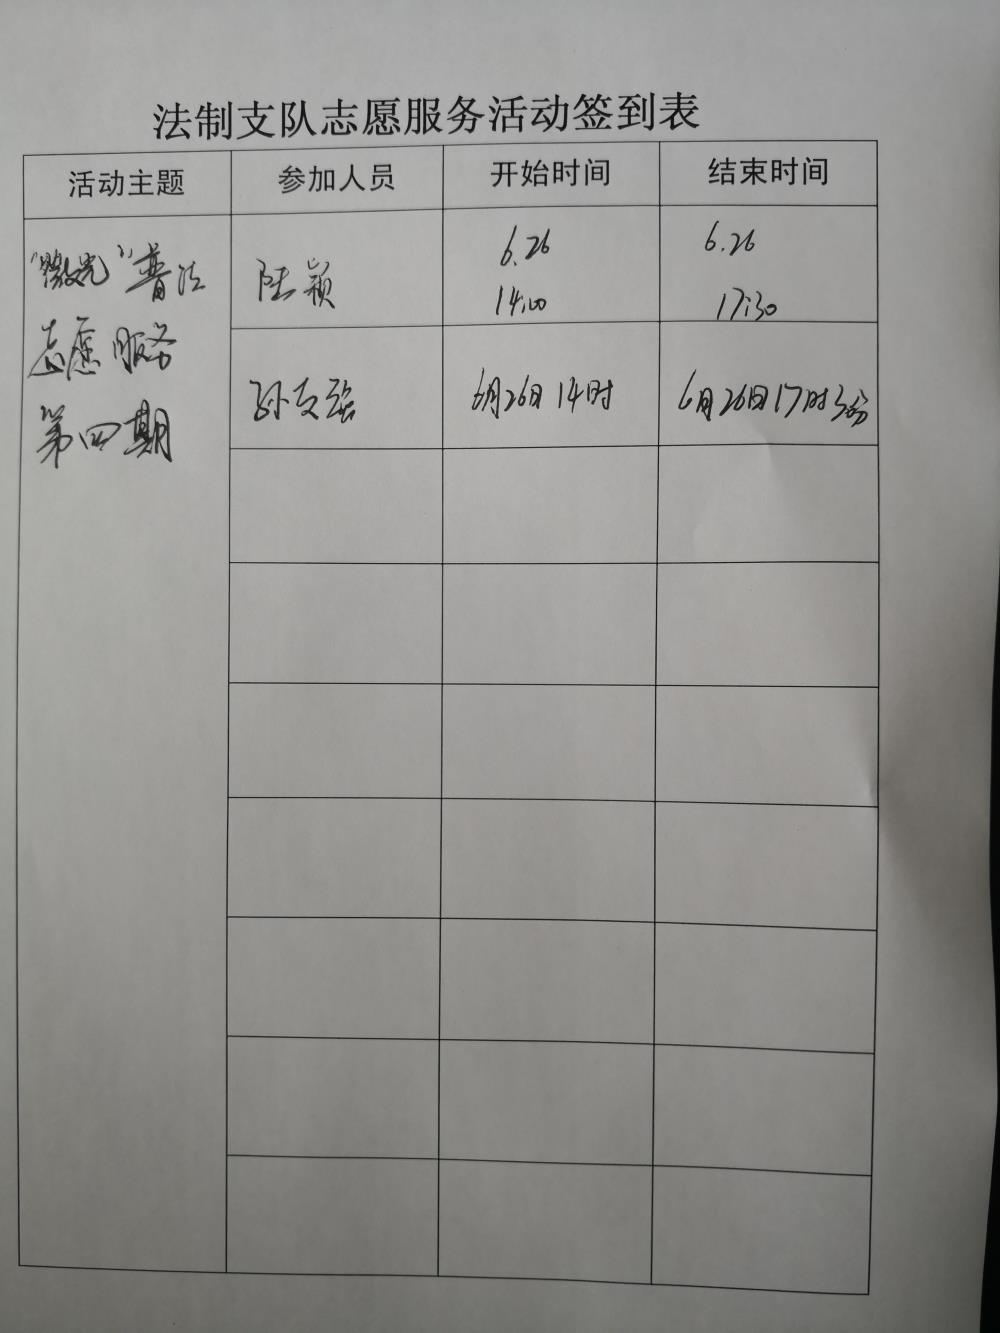 法制支队志愿服务活动签到表
活动主题 参加人员 开始时间 结束时间
"微光"普法
志愿服务
第四期
陆颖 6.26 6.26
14:00 17:30
孙文强 6月26日14时 6月26日17时30分